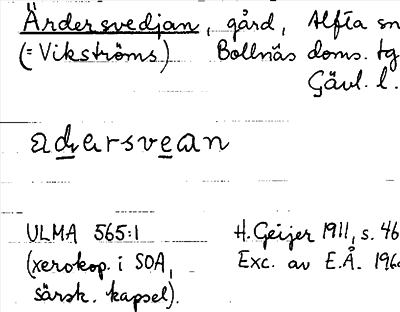 Ärdersvedjan, gård, Alfta sn
(= Vikströms) Bollnäs doms. tg
Gävl. l.
adersvean
ULMA 565:1 H. Geijer 1911, s. 46
(xerokop. i SOA, Exc. av E.Å. 196
särsk. kapsel).